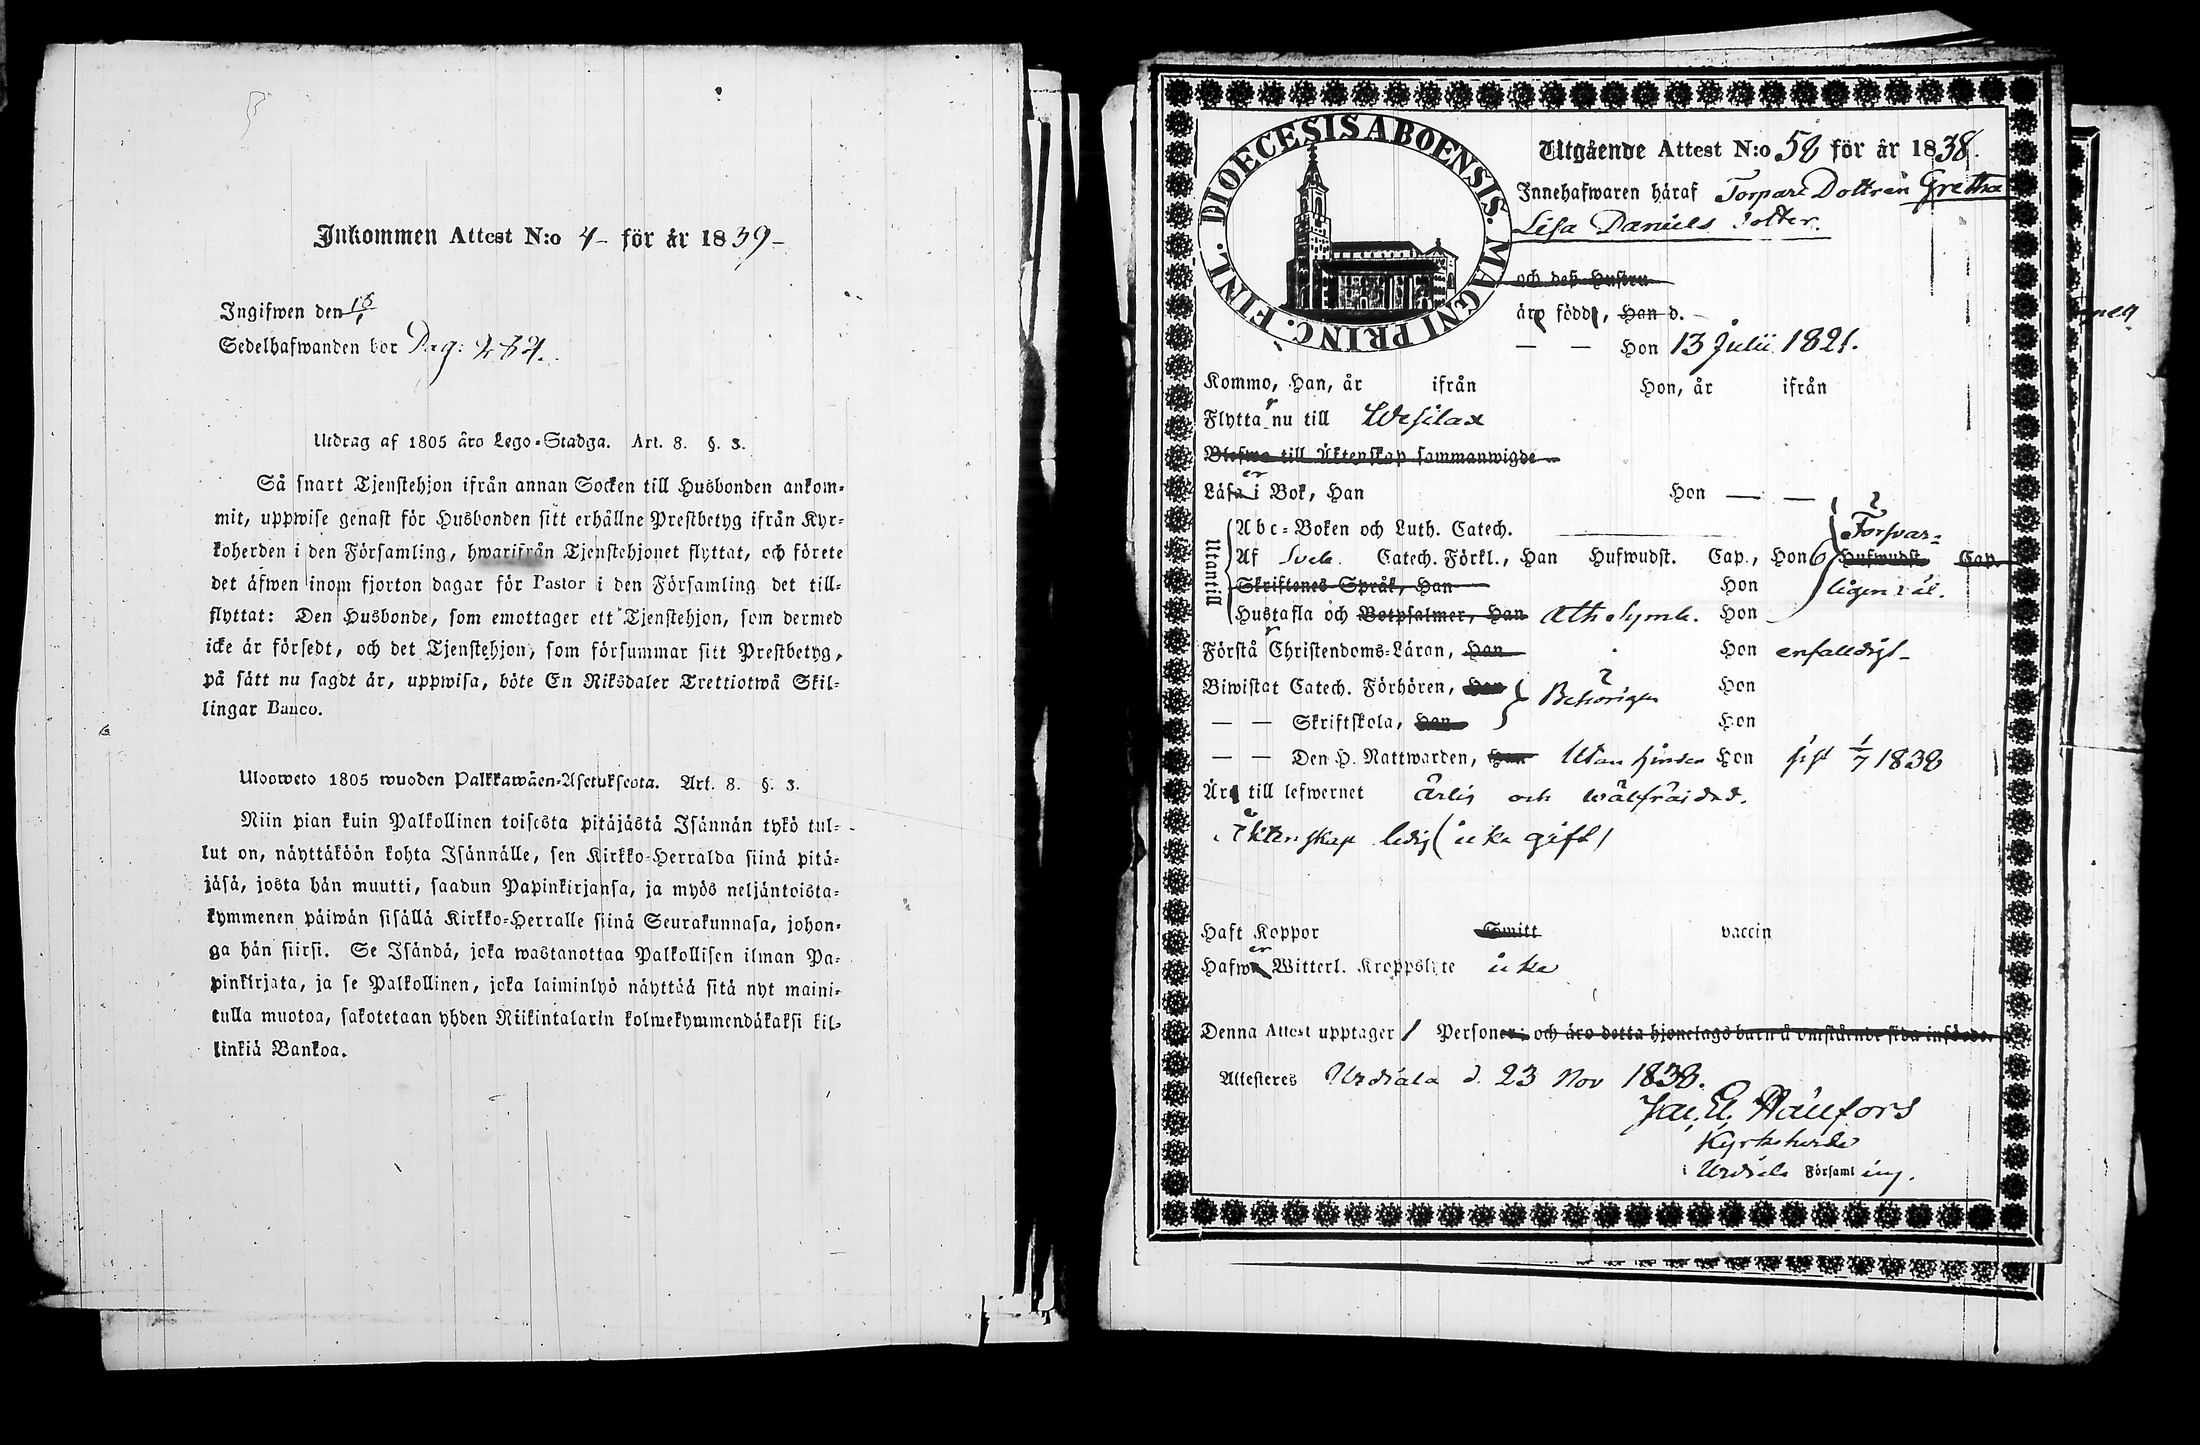 Inkommen Attest N:o 4 – för år 1839 –
Ingifwen den 15/1
Sedelhafwanden bor Pag:
Utdrag af 1805 åro Lego-Stadga. Art. 8. §. 3.
Så snart Tjenstehjon ifrån annan Socken till Husbonden ankom-
mit, uppwise genast för Husbonden sitt erhållne Prestbetyg ifrån Kyr-
koherden i den Församling, hwarifrån Tjenstehjonet flyttat, och förete
det äfwen inom fjorton dagar för Pastor i den Församling det till-
flyttat: Den Husbonde, som emottager ett Tjenstehjon, som dermed
icke är försedt, och det Tjenstehjon, som försummar sitt Prestbetyg,
på sätt nu sagdt är, uppwisa, böte En Riksdaler Trettiotwå Skil-
lingar Banco.
Ulosweto 1805 wuoden Palkkawäen-Asetuksesta. Art. 8. §. 3.
Niin pian kuin Palkollinen toisesta pitäjästä Isännän tykö tul-
lut on, näyttäköön kohta Isännälle, sen Kirkko-Herralda siinä pitä-
jäsä, josta hän muutti, saadun Papinkirjansa, ja myös neljäntoista-
kymmenen päiwän sisällä Kirkko-Herralle siinä Seurakunnasa, johon-
ga hän siirsi. Se Isändä, joka wastanottaa Palkollisen ilman Pa-
pinkirjata, ja se Palkollinen, joka laiminlyö näyttää sitä nyt maini-
tulla muotoa, sakotetaan yhden Riikintalarin kolmekymmendäkaksi kil-
linkiä Bankoa.
DIOECESIS ABOENSIS. MAGNI PRINC. FINL.
Utgående Attest N:o 58 för år 1838.
Innehafwaren häraf Torpare Dottren Gretha
Lisa Daniels dotter.
och deß Hustru
äro född, Han d.
— — Hon 13 Julii 1821.
Kommo, Han, år ifrån Hon, år ifrån
Flyttar nu till Wesilax
Blefwo till Äktenskap sammanwigde
Läser i Bok, Han Hon — —
Utantill
Abc-Boken och Luth. Catech. Försvar-
Af Sveb. Catech. Förkl., Han Hufwudst. Cap., Hon 6 Hufwudst. Cap.
Skriftenes Språk, Han Hon ligen
Hustafla och Botpsalmer, Han Ath. Symb. Hon
Förstår Christendoms-Läran, Han Hon enfalldigt –
Biwistat Catech. Förhören, Han Behörigen Hon
— — Skriftskola, Han Hon
— — Den H. Nattwarden, Han Utan hinder Hon sist 1/7 1838
Är till lefwernet ärlig och wälfräjdad.
i äktenskap ledig (icke gift)
Haft Koppor Smitt vaccin
Hafwer Witterl. Kroppslyte icke
Denna Attest upptager 1 Personer; och äro detta hjonelags barn å omstående sida införde.
Attesteres Urdiala d. 23 Nov 1838.
Kyrkoherde
i Urdiala Församling.